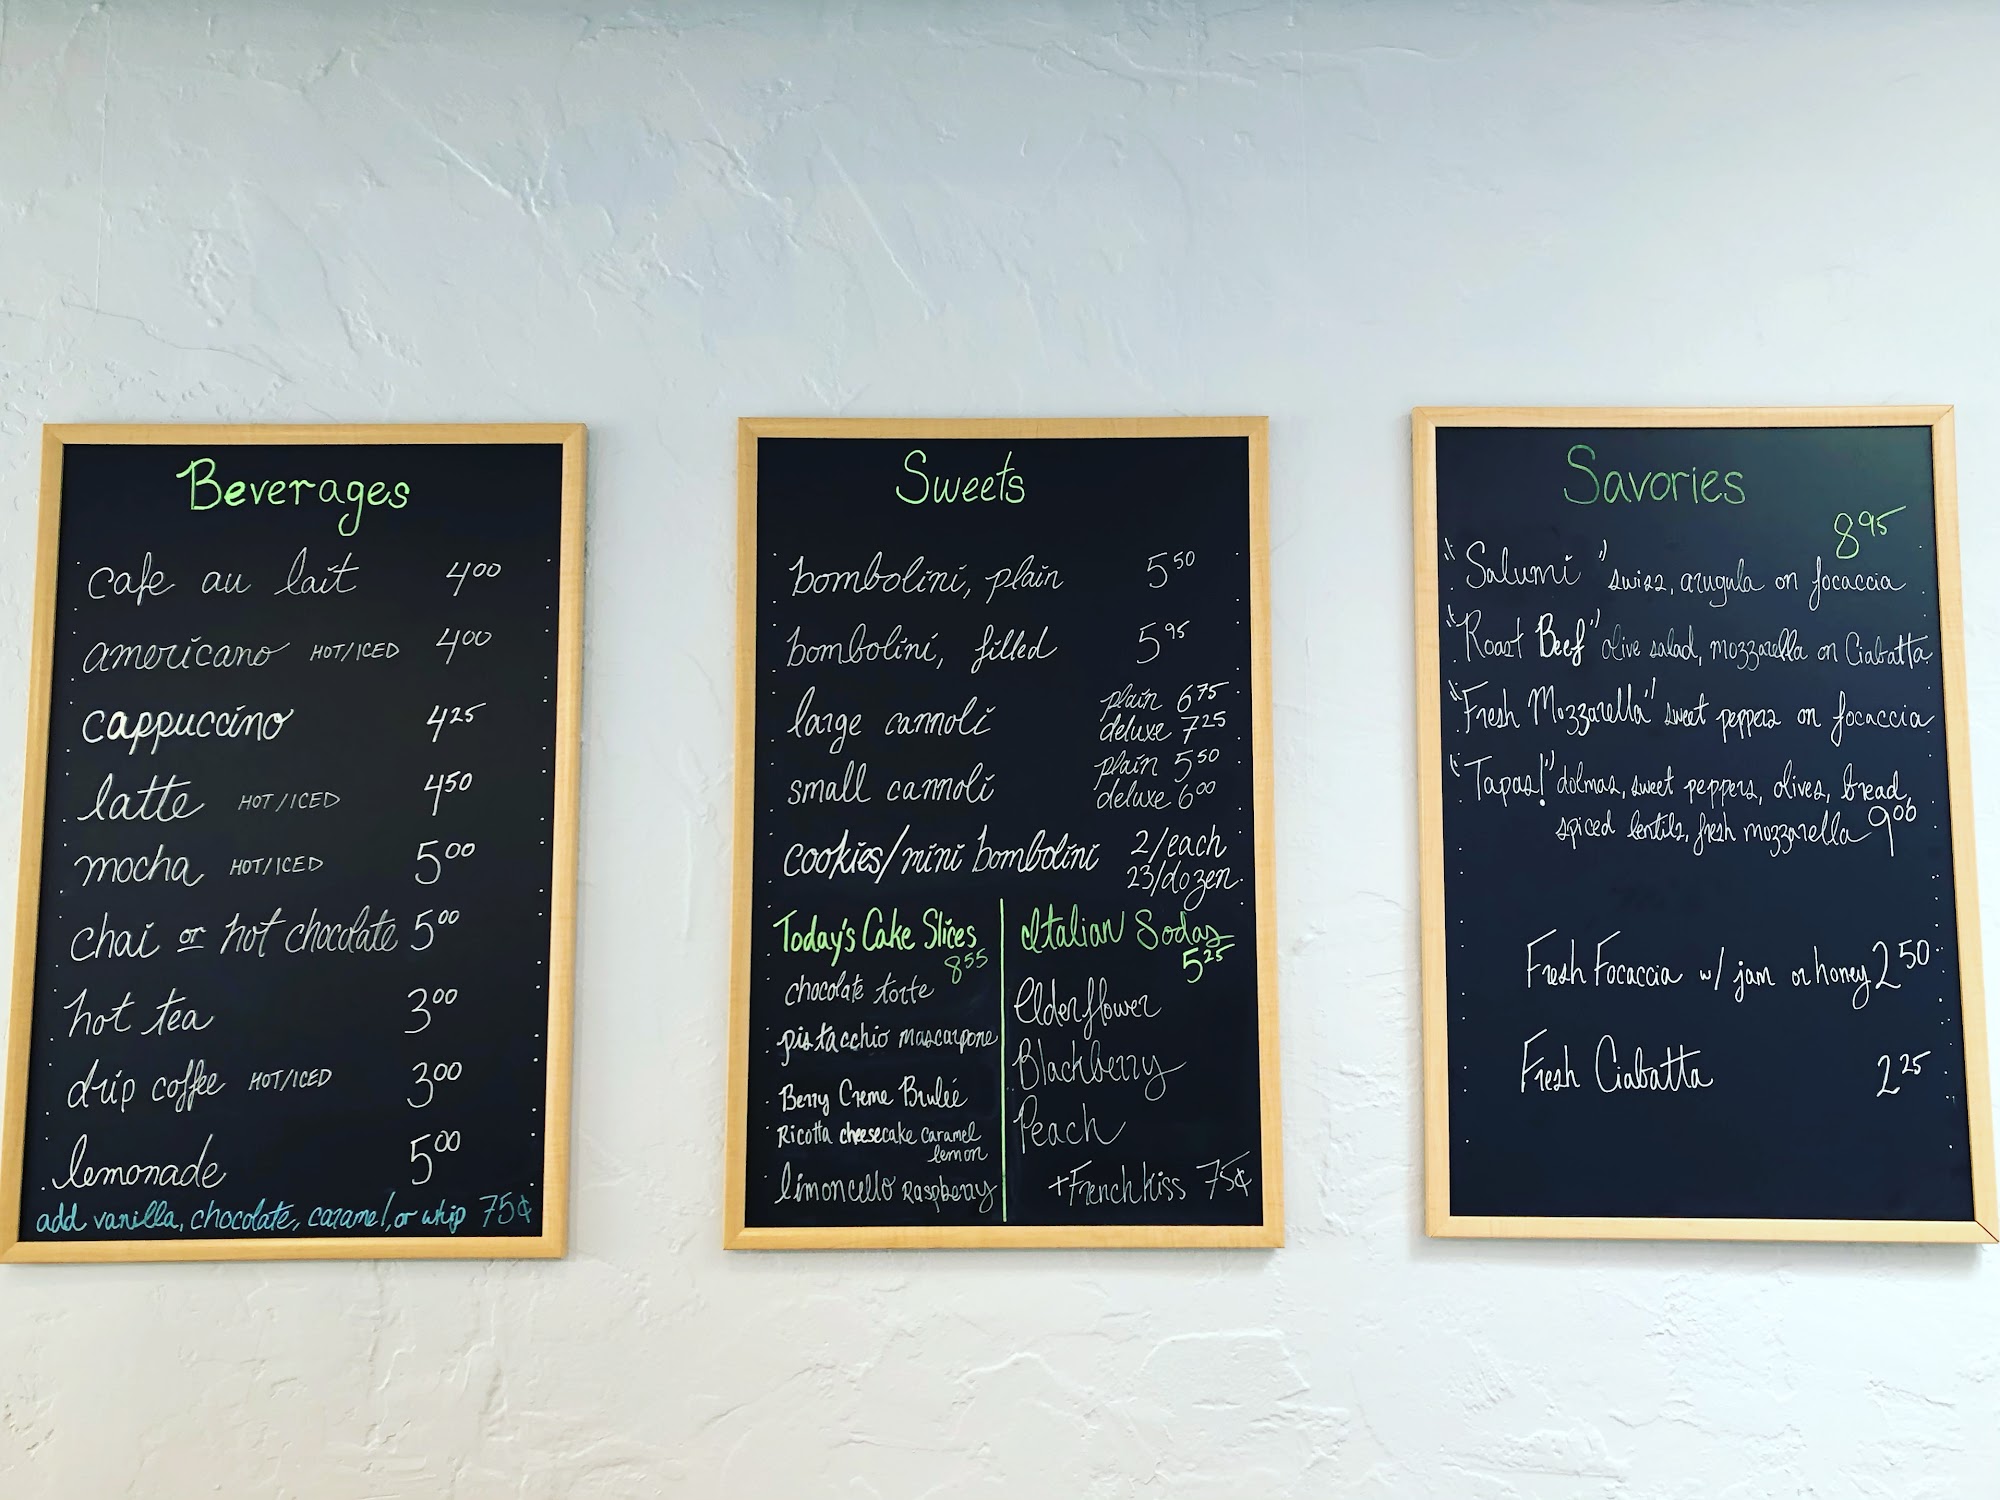 Beverages
cafe au lait 4.00
americano HOT/ICED 4.00
cappuccino 4.25
latte HOT/ICED 4.50
mocha HOT/ICED 5.00
chai or hot chocolate 5.00
hot tea 3.00
drip coffee HOT/ICED 3.00
lemonade 5.00
add vanilla, chocolate, caramel, or whip 75¢
Sweets
bombolini, plain 5.50
bombolini, filled 5.95
large cannoli plain 6.75
deluxe 7.25
small cannoli plain 5.50
deluxe 6.00
cookies/mini bombolini 2/each
23/dozen
Today's Cake Slices
8.55
chocolate torte
pistacchio mascarpone
Berry Creme Brulée
Ricotta cheesecake caramel
lemon
limoncello Raspberry
Italian Sodas
5.25
Elderflower
Blackberry
Peach
+French Kiss 75¢
Savories
8.95
"Salumi" swiss, arugula on focaccia
"Roast Beef" olive salad, mozzarella on Ciabatta
"Fresh Mozzarella" sweet peppers on focaccia
"Tapas!" dolmas, sweet peppers, olives, bread,
spiced lentils, fresh mozzarella 9.00
Fresh Focaccia w/ jam or honey 2.50
Fresh Ciabatta 2.25